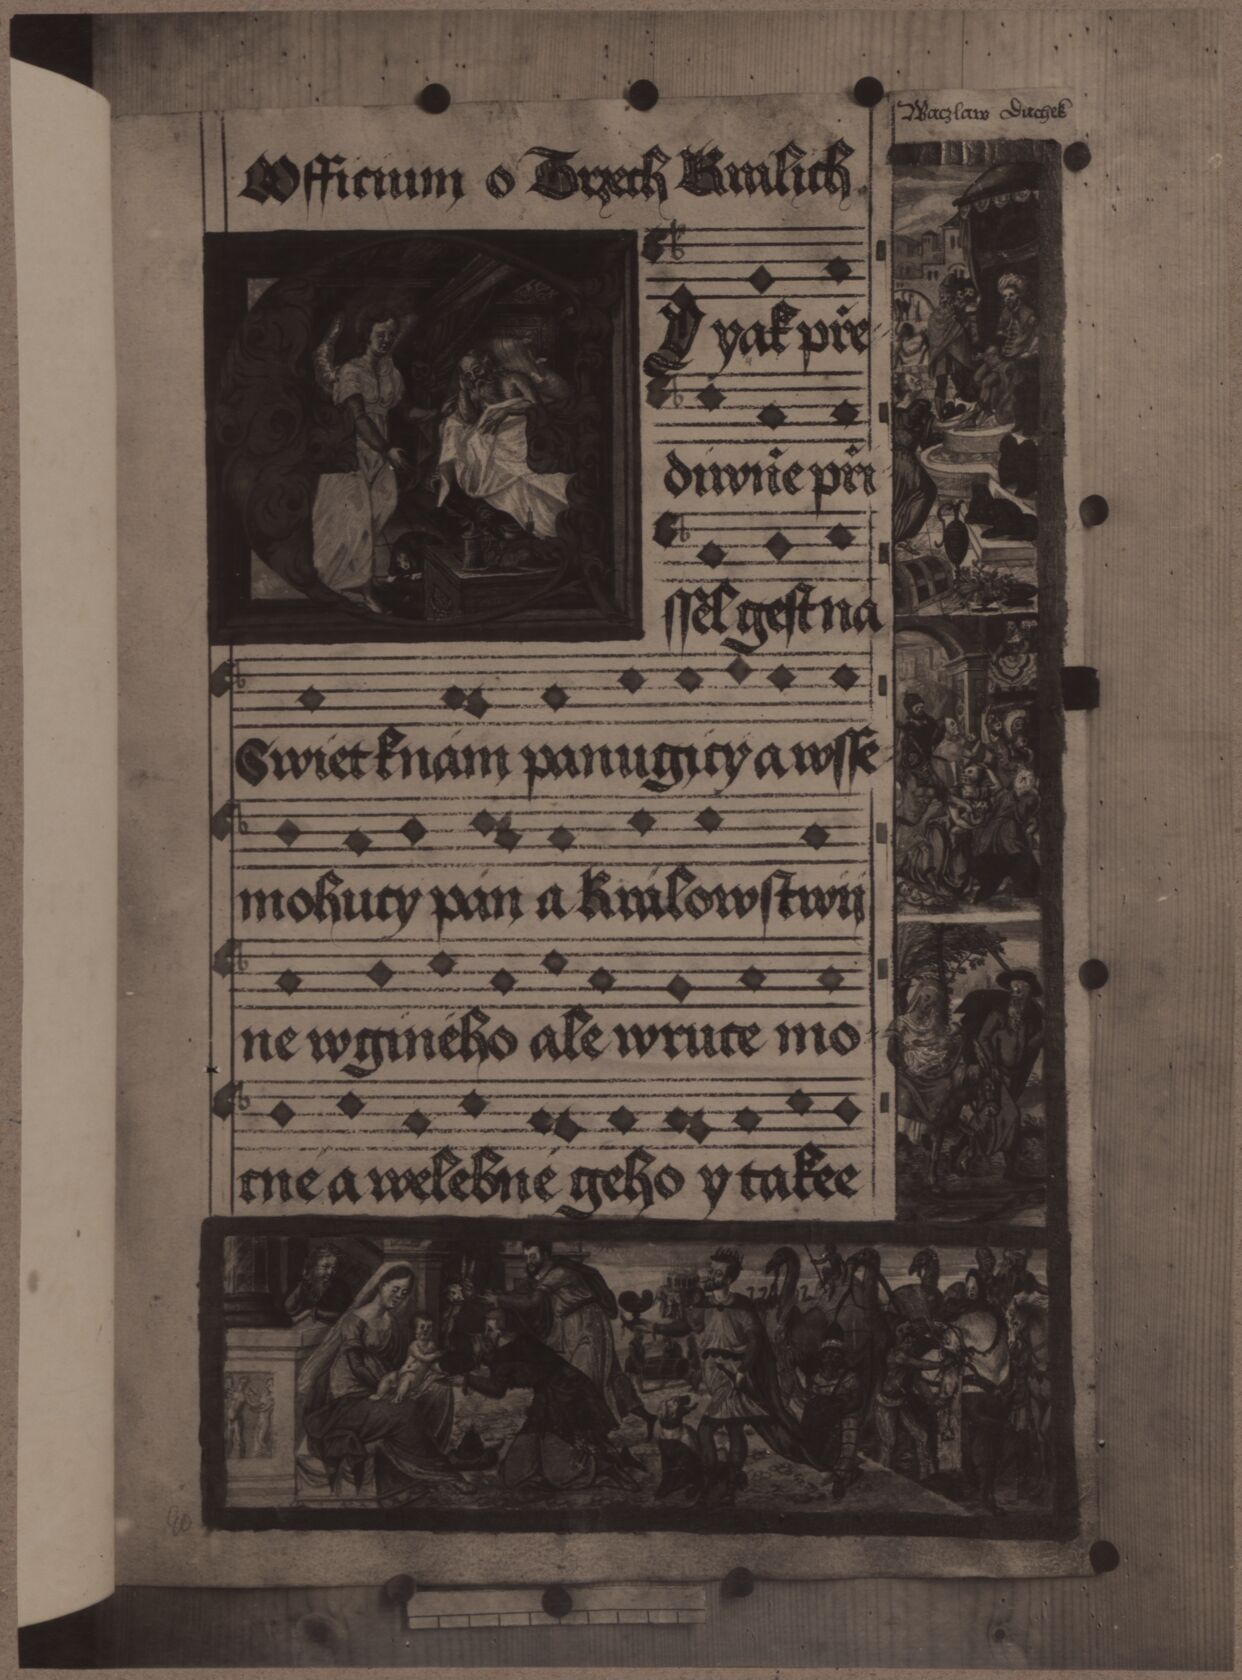 Waczlaw Duchek
Officium o Trzech Kralich
Ey yak pře
diwně při
ssel gest na
Swiet k nám panugicy a wsse
mohucy pán a Kralowstwij
ne w giného ale w ruce mo
cné a welebné geho y takee
90